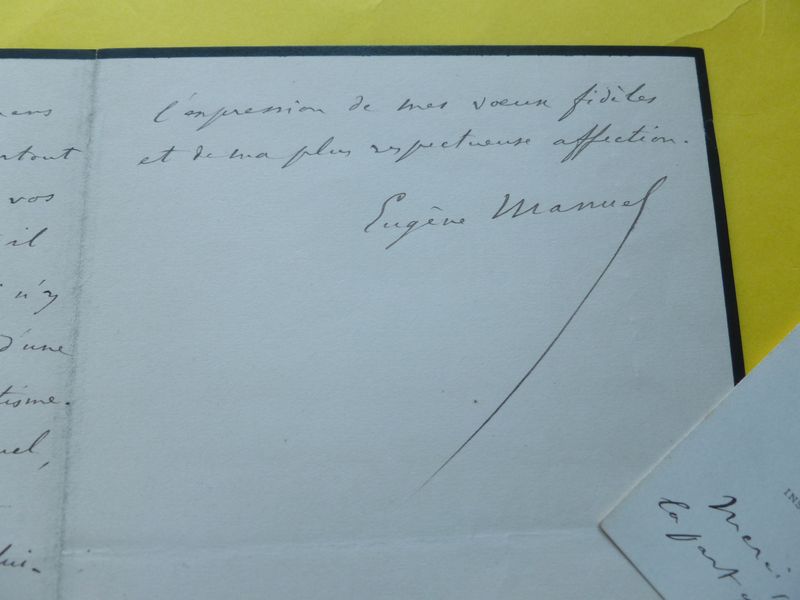 surtout
vos
il
n'y
d'une
tisme.
uel,
lui-
l'expression de mes vœux fidèles
et de ma plus respectueuse affection.
Eugène Manuel
INS
Merci
la part